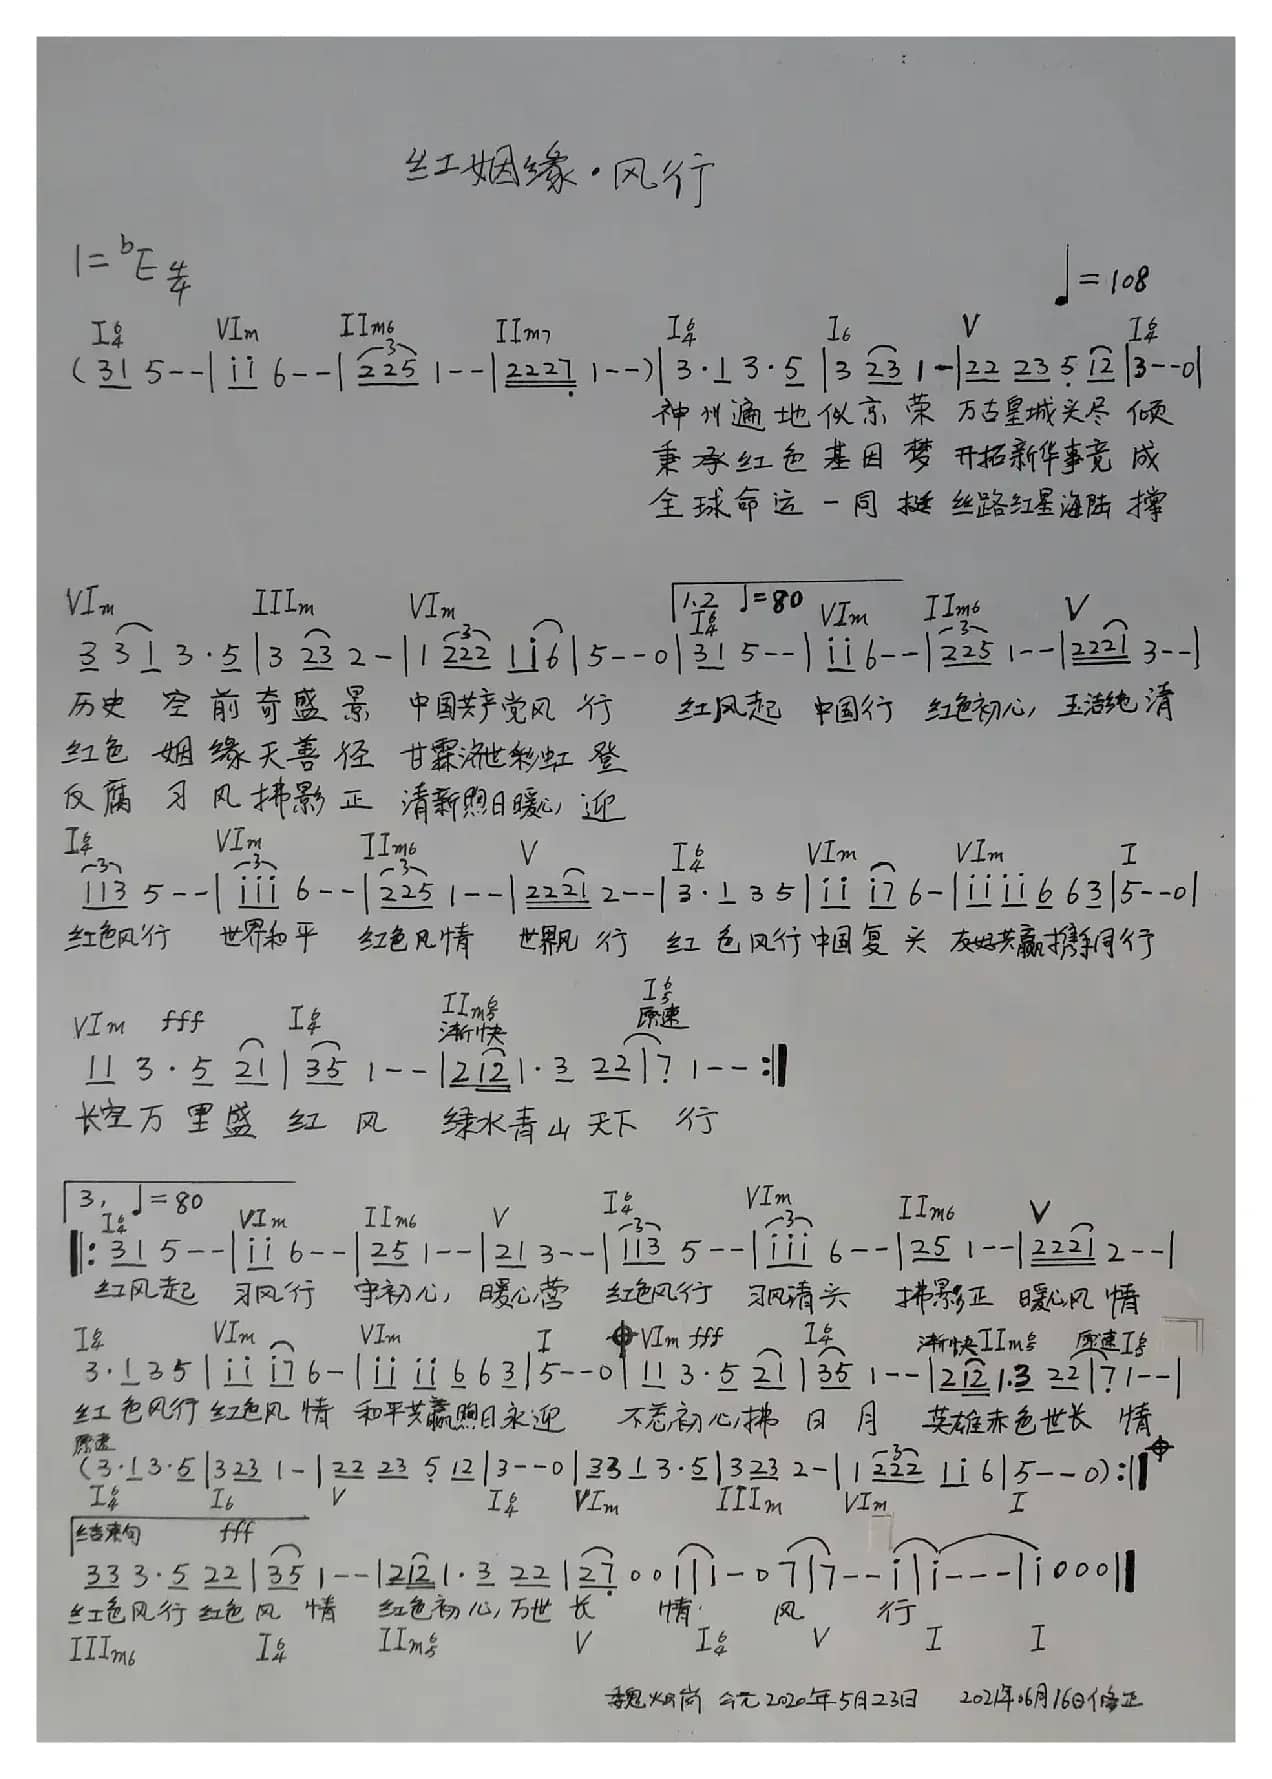 红姻缘·风行
1=bE 4/4
♩=108
I64 VIm IIm6 IIm7 I64 I6 V I64
(31 5--|ii 6--|225 1--|2227 1--)|3·1 3·5|3 23 1-|22 23 5 12|3--0|
神州遍地似京荣 万古皇城关尽倾
秉承红色基因梦 开拓新华事竟成
全球命运一同挺 丝路红星海陆撑
VIm IIIm VIm 1.2 ♩=80 I64 VIm IIm6 V
3 3 1 3·5|3 23 2-|1 222 1i6|5--0|31 5--|ii 6--|225 1--|2221 3--|
历史空前奇盛景 中国共产党风行 红风起 中国行 红色初心,玉洁纯清
红色姻缘天善径 甘霖济世彩虹登
反腐习风拂影正 清新煦日暖心迎
I64 VIm IIm6 V I64 VIm VIm I
113 5--|iii 6--|225 1--|2221 2--|3·1 35|ii i7 6-|ii ii 6 63|5--0|
红色风行 世界和平 红色风情 世界风行 红色风行中国复兴 友好共赢携手同行
VIm fff I64 IIm65 渐快 I65 原速
11 3·5 21|35 1--|212 1·3 22|7 1--:‖
长空万里盛红风 绿水青山天下行
3, ♩=80
I64 VIm IIm6 V I64 VIm IIm6 V
‖:31 5--|ii 6--|25 1--|21 3--|113 5--|iii 6--|25 1--|2221 2--|
红风起 习风行 守初心,暖心营 红色风行 习风清兴 拂影正 暖心风情
I64 VIm VIm I VIm fff I64 渐快IIm65 原速I65
3·1 35|ii i7 6-|ii ii 6 63|5--0|11 3·5 21|35 1--|212 1·3 22|7 1--|
红色风行红色风情 和平共赢煦日永迎 不忘初心,拂日月 英雄赤色世长情
原速
(3·1 3·5|323 1-|22 23 5 12|3--0|33 1 3·5|323 2-|1 222 1i6|5--0):‖
I64 I6 V I64 VIm IIIm VIm I
结束句 fff
33 3·5 22|35 1--|212 1·3 22|27 00 1|1-07|7--i|i---|i000‖
红色风行红色风情 红色初心,万世长情 风行
IIIm6 I64 IIm65 V I64 V I I
公元2020年5月23日 2021年06月16日修正